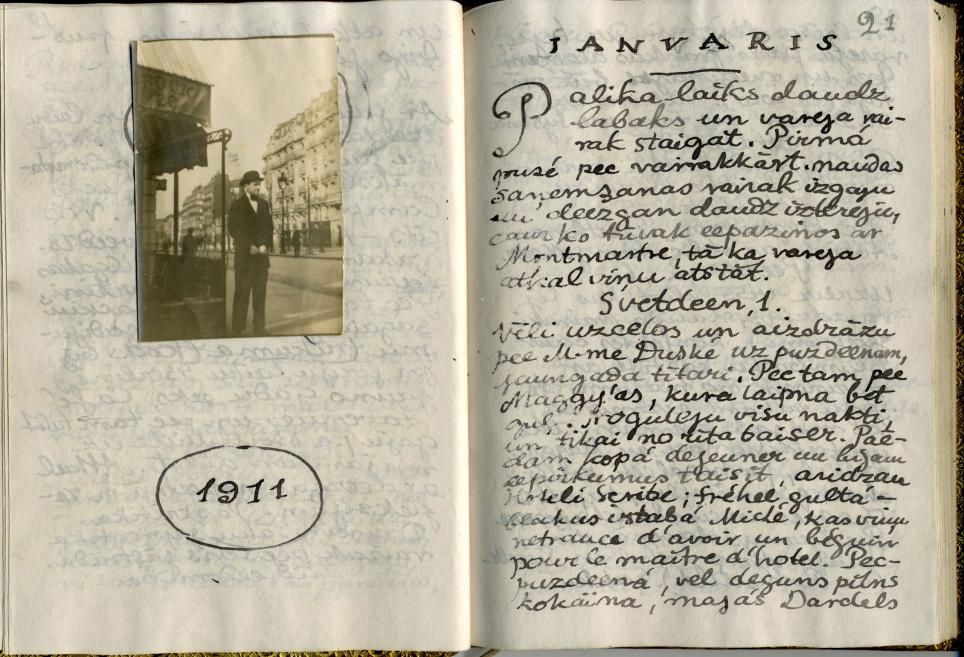 1911
21
IANVARIS
Palika laiks daudz
labaks un vareja vai-
rak staigat. Pirmá
pusé pec vairakkárt. naudas
saņemšanas vairak izgaju
un deezgan daudz iztereju,
caur ko tuvak eepazinos ar
Montmartre, tá ka vareja
atkal viņu atstát.
Svetdeen, 1.
Véli uzcelos un aizdrázu
pee M-me Duské uz puzdeenam,
jaungada titari. Pec tam pee
Maggy'as, kura laipna bet
gul. Noguleju visu nakti,
un tikai no rita baiser. Paé-
dam kopá dejeuner un
eepirkumus taisit, aridzan
Hoteli Scribe; fréhel gultá –
blakus istabá Miché, kas viņu
netrauce d'avoir un béguin
pour le maitre d'hotel. Pec-
puzdeená, vel deguns pilns
kokáina, majás Dardels